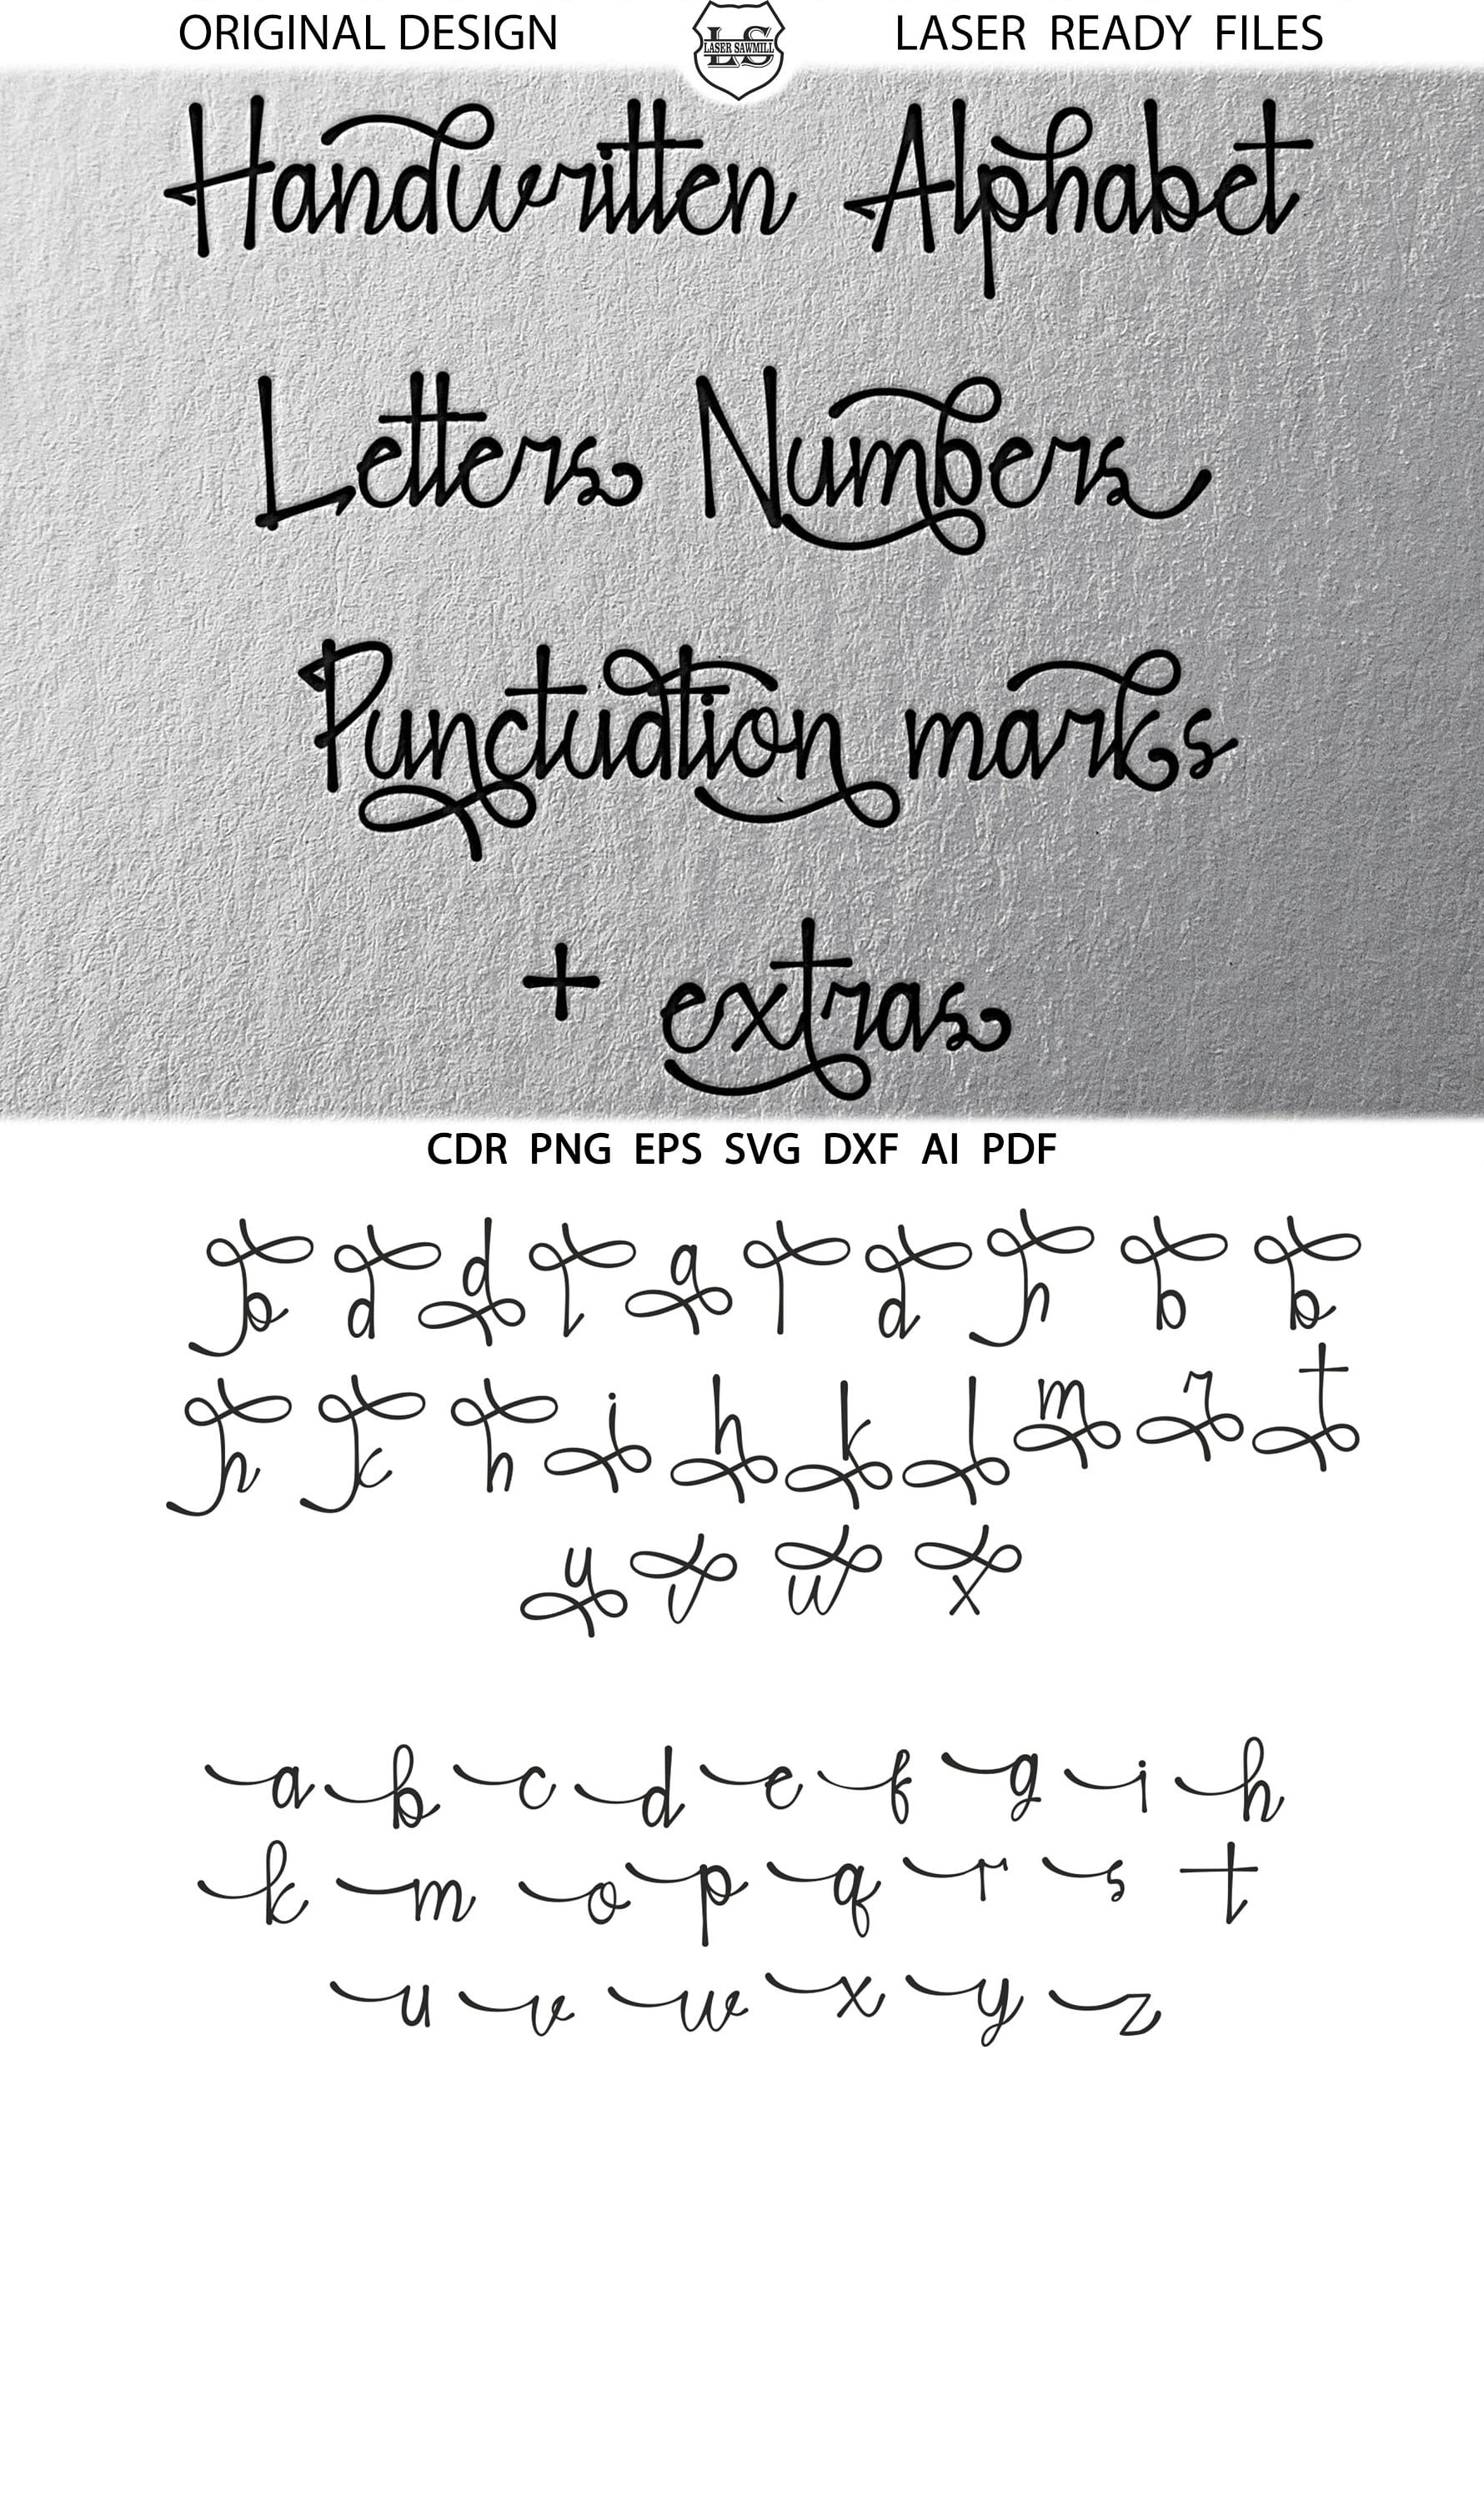 ORIGINAL DESIGN LS LASER SAWMILL LASER READY FILES
Handwritten Alphabet
Letters Numbers
Punctuation marks
+ extras
CDR PNG EPS SVG DXF AI PDF
b d d l q l d h b b
h k h i h k l m r t
y v w x
a b c d e f g i h
k m o p q r s t
u v w x y z